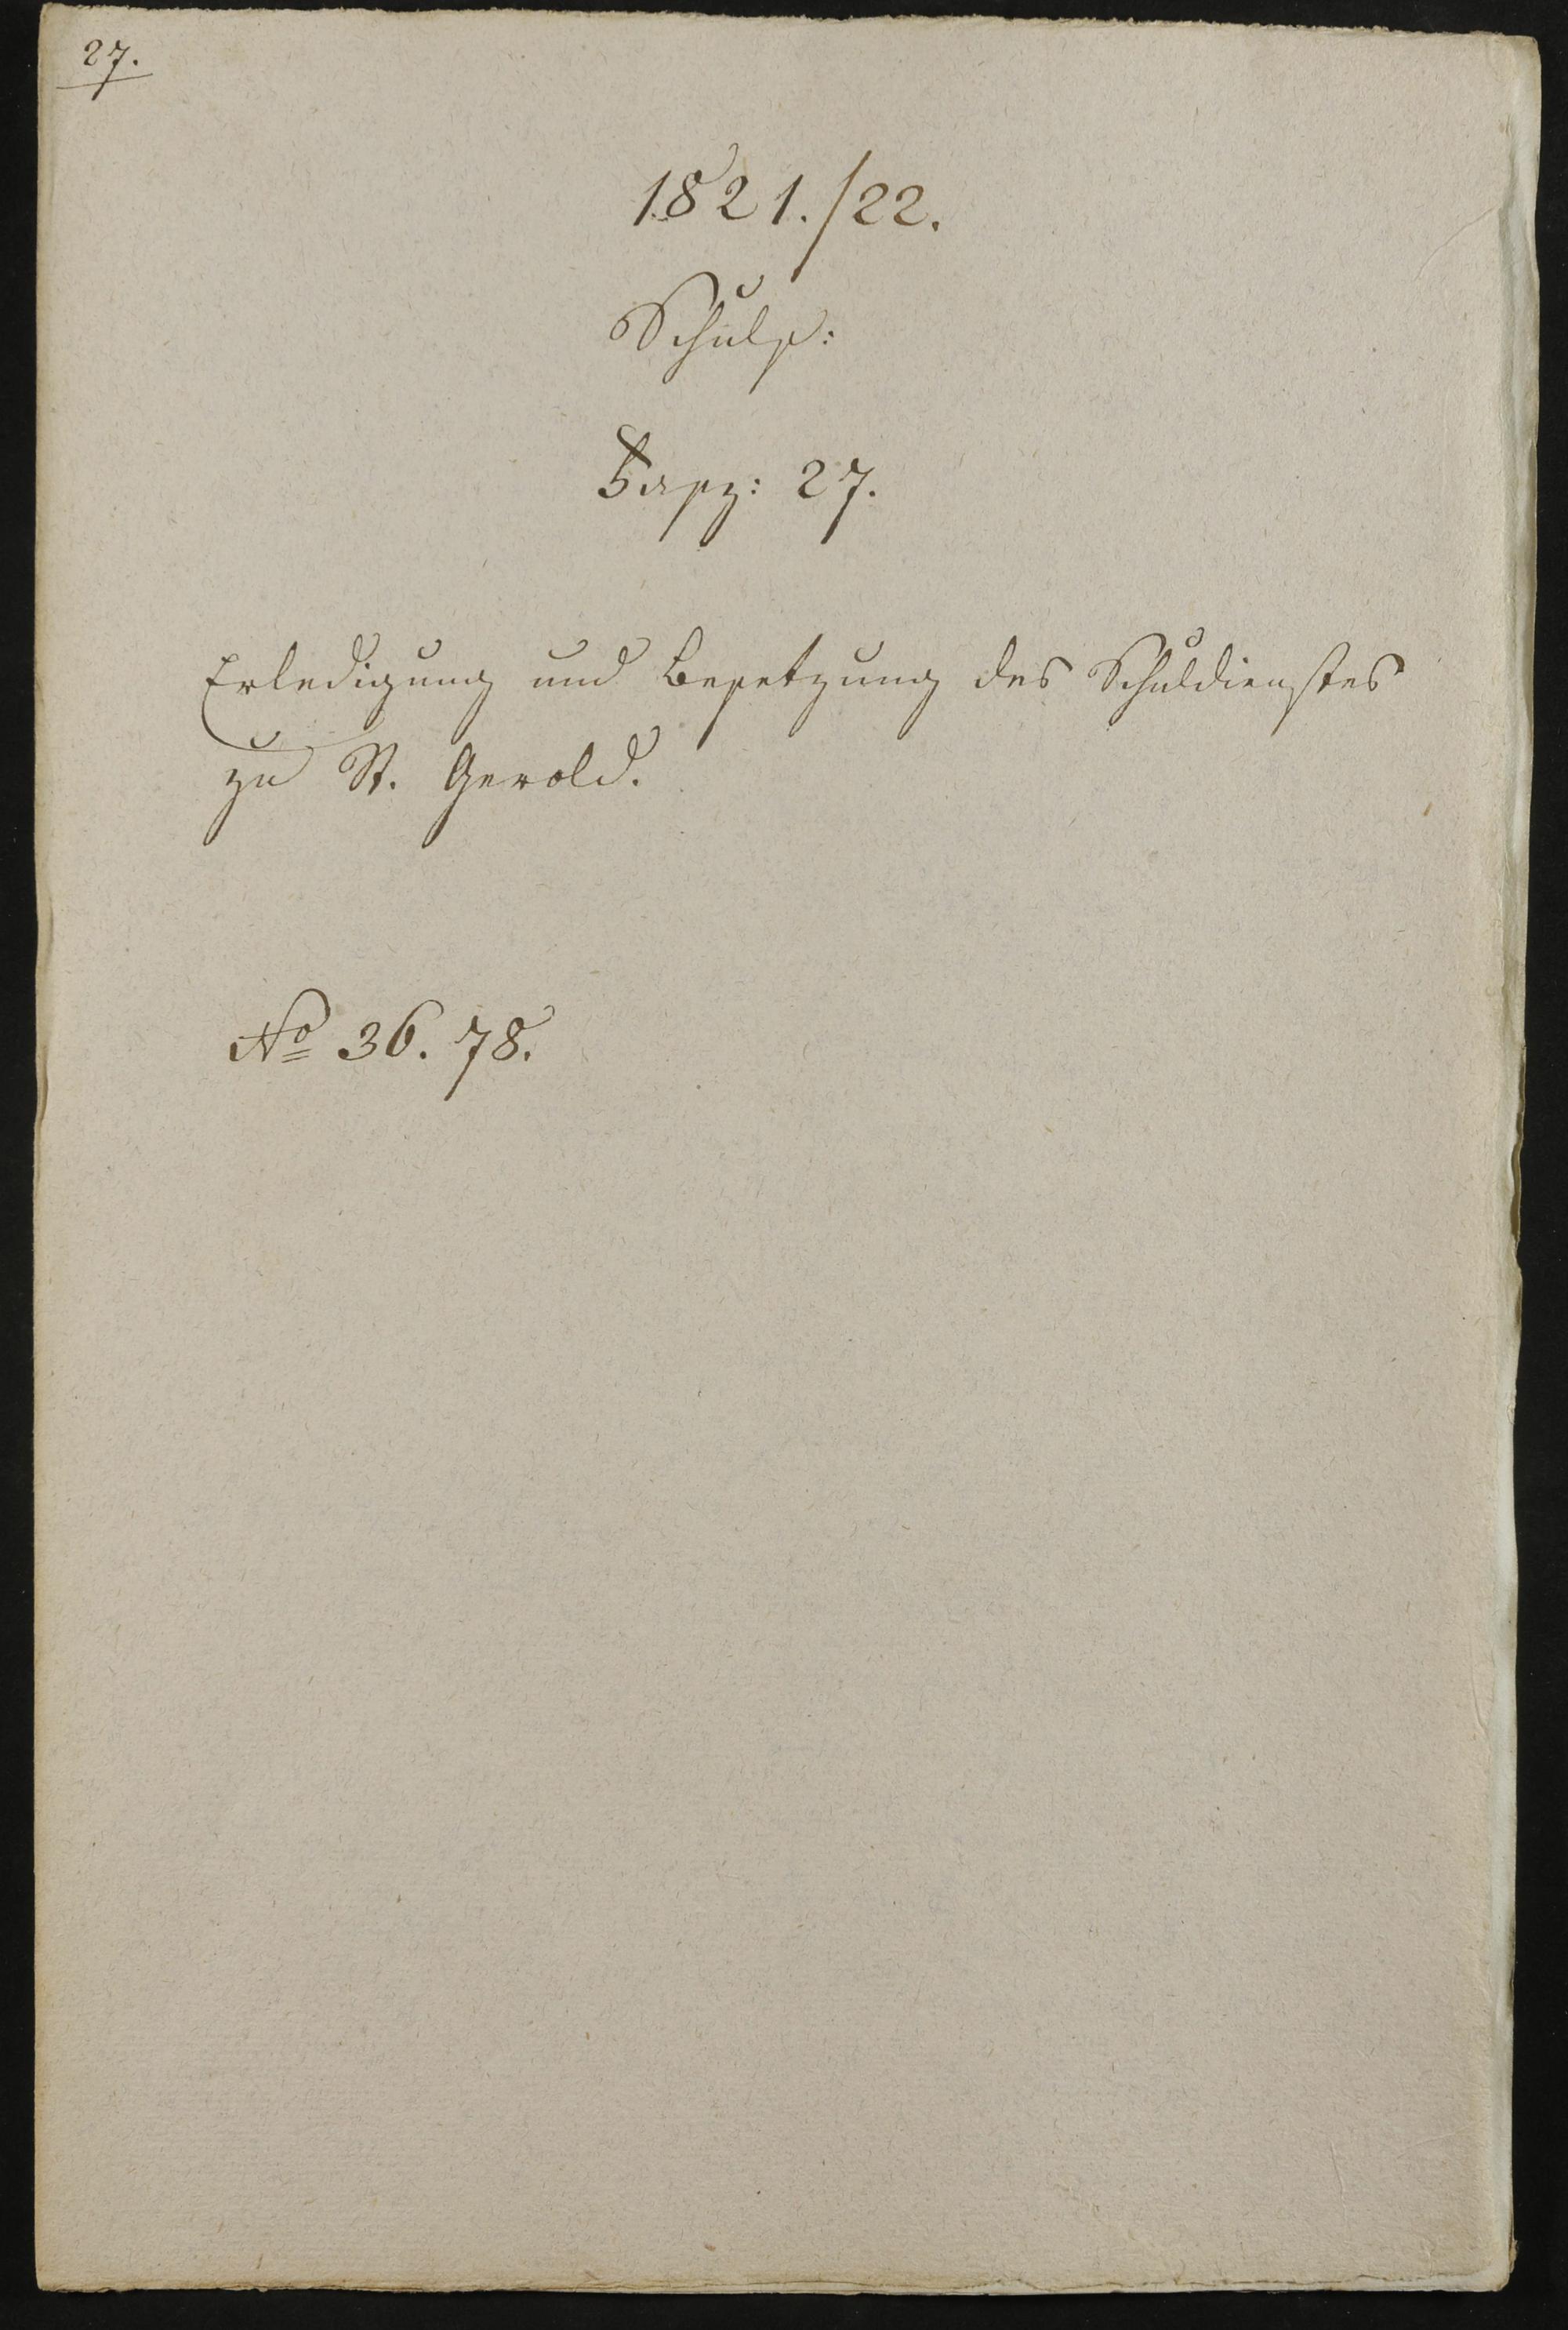 27.
1821./22.
Schuls:
Fasz: 27.
Erledigung und Besetzung des Schuldienstes
zu St. Gerold.
No 36. 78.